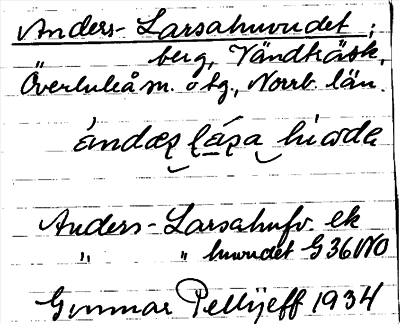 Anders-Larsahuvudet;
berg, Vändträsk,
Överluleå sn. o tg., Norrb. län.
ándæʂ l̨áʂa hʉvdɐ
Anders-Larsahufv. ek
" " huvudet G36NO
Gunnar Pellijeff 1934